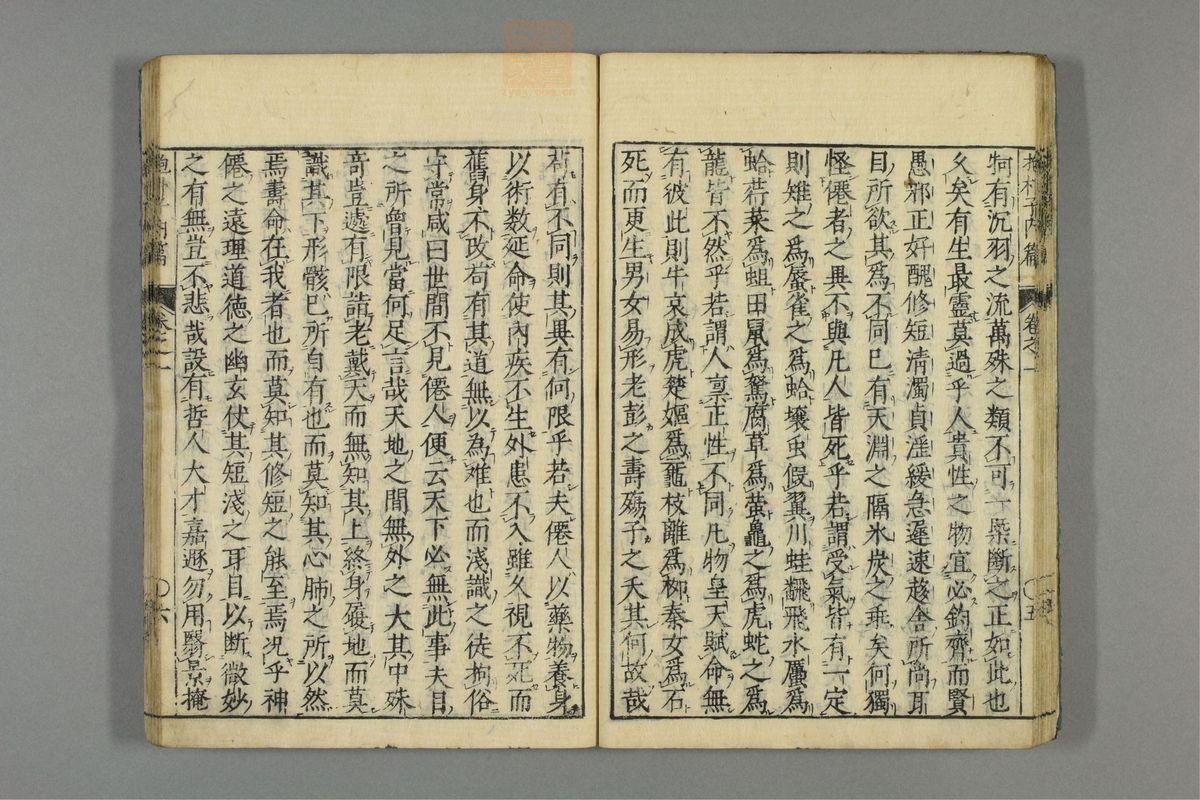 抱朴子內篇 卷之一 〇五
牱有沉羽之流萬殊之類不可一槩斷之正如此也
久矣有生最靈莫過乎人貴性之物宜必鈞齊而賢
愚邪正好醜修短清濁貞淫緩急遲速趍舍所尚耳
目所欲其爲不同已有天淵之隔氷炭之乖矣何獨
怪僊者之異不與凡人皆死乎若謂受氣皆有一定
則雉之爲蜃雀之爲蛤壤虫假翼川蛙翻飛水蠣爲
蛤荇菜爲蛆田鼠爲鴽腐草爲螢鼉之爲虎蛇之爲
龍皆不然乎若謂人禀正性不同凡物皇天賦命無
有彼此則牛哀成虎楚嫗爲黿枝離爲柳秦女爲石
死而更生男女易形老彭之壽殤子之夭其何故哉
苟有不同則其異有何限乎若夫僊人以藥物養身
以術数延命使內疾不生外患不入雖久視不死而
舊身不改苟有其道無以為难也而淺識之徒拘俗
守常咸曰世間不見僊人便云天下必無此事夫目
之所曾見當何足言哉天地之間無外之大其中殊
竒豈遽有限詣老戴天而無知其上終身履地而莫
識其下形骸已所自有也而莫知其心肺之所以然
焉壽命在我者也而莫知其修短之能至焉况乎神
僊之遠理道徳之幽玄伏其短淺之耳目以断微妙
之有無豈不悲哉設有哲人大才嘉遯勿用翳景掩
抱朴子內篇 卷之一 〇六